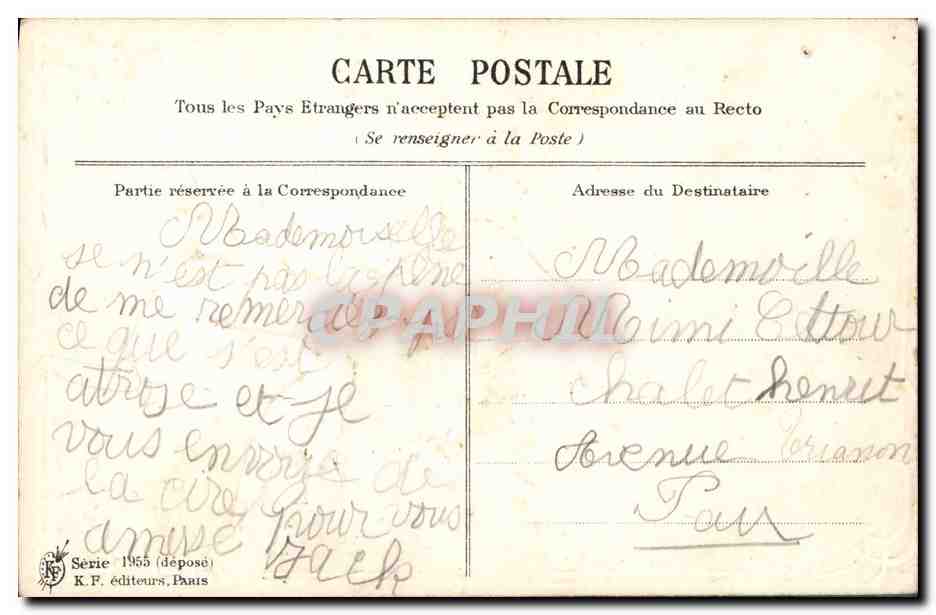 CARTE POSTALE
Tous les Pays Etrangers n'acceptent pas la Correspondance au Recto
(Se renseigner à la Poste)
Partie réservée à la Correspondance
Mademoiselle
se n'est pas la pene
de me remercier
ce que s'est
atrose et je
vous envoye de
la cire pour vous
amuse Jack
Série 1955 (déposé)
K.F. éditeurs, PARIS
KF
Adresse du Destinataire
Mademoille
Mimi Cottour
chalet henrit
Avenue Trianon
Pau
CPAPHIL